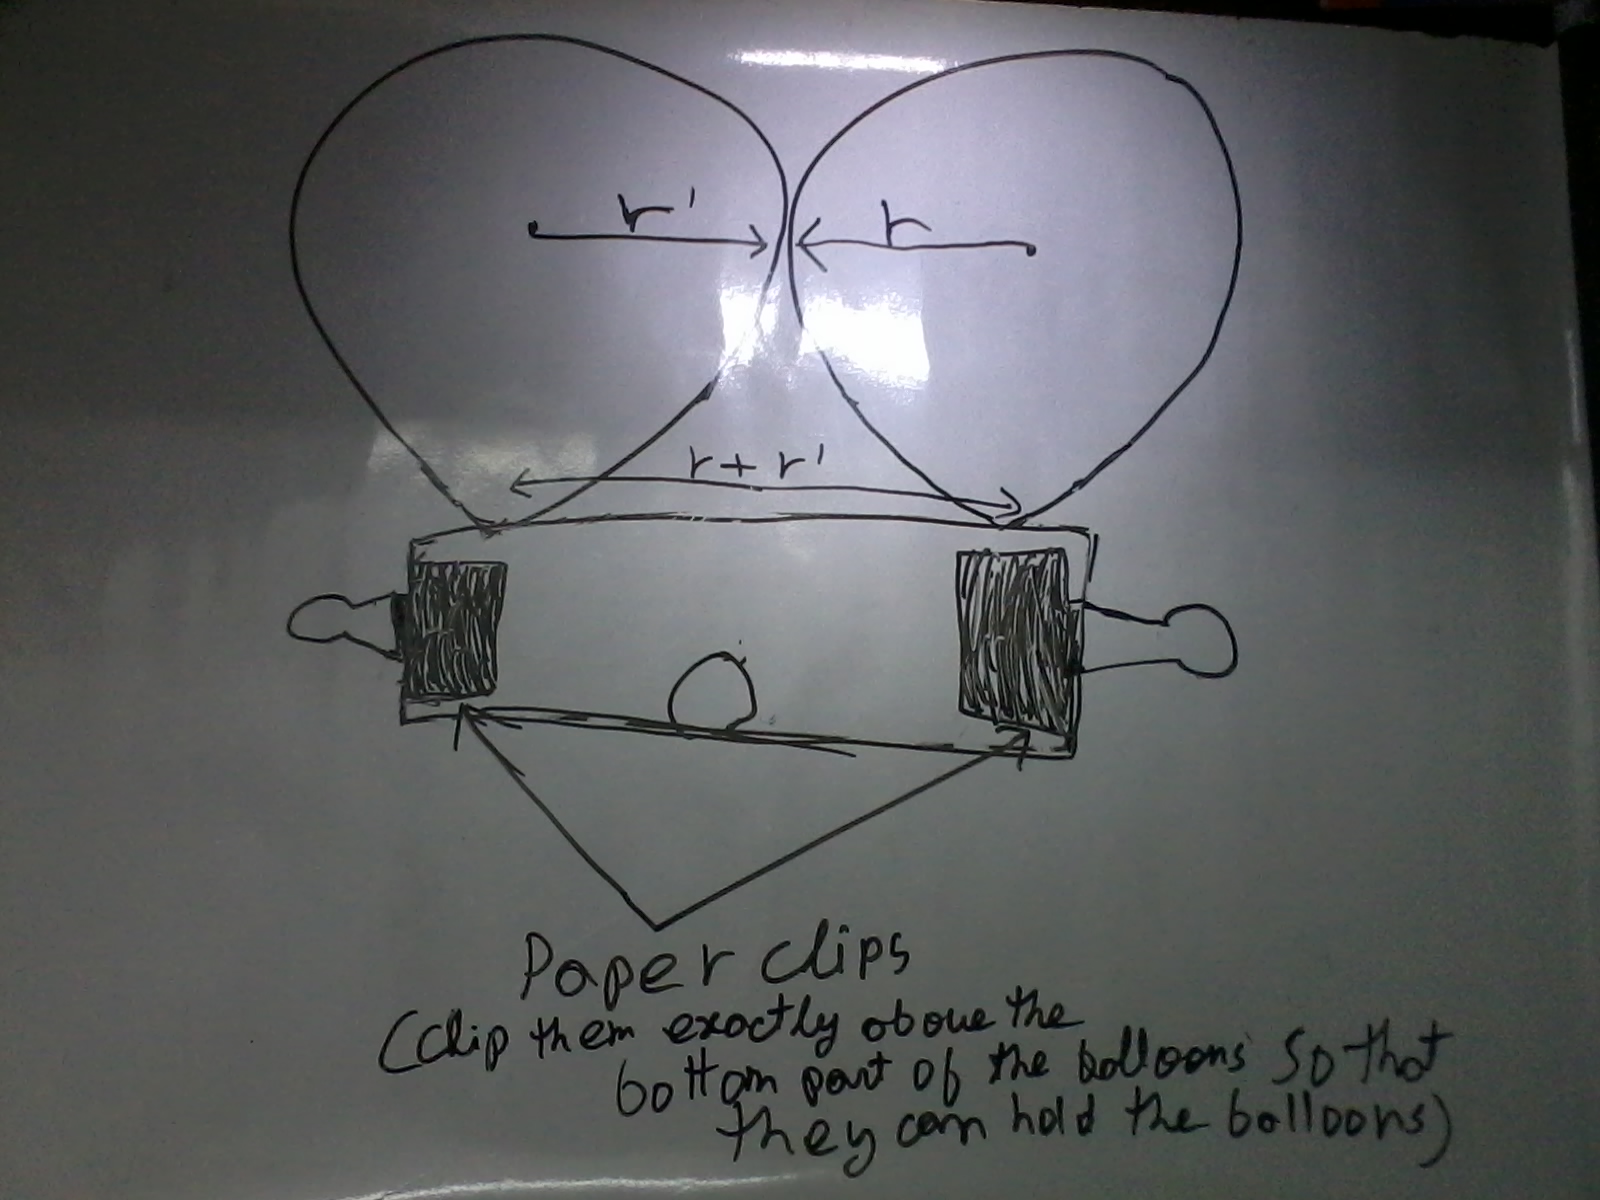 r' r
r + r'
Paper clips
(Clip them exactly above the
bottom part of the balloons so that
they can hold the balloons)